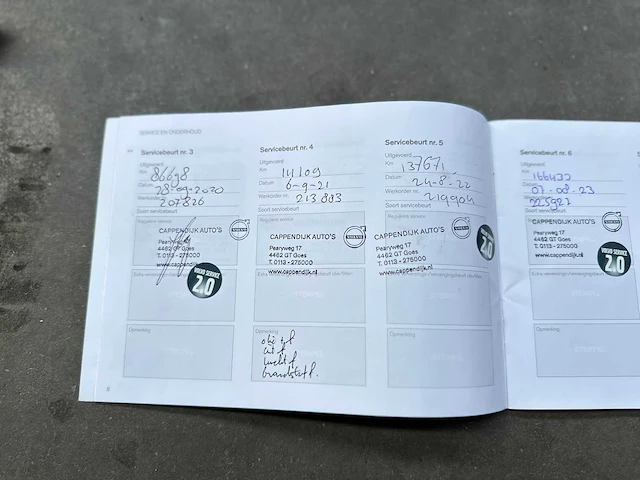 SERVICE EN ONDERHOUD
Servicebeurt nr. 3
Uitgevoerd
Km 86698
Datum 28-09-2020
Werkorder nr. 207826
Soort servicebeurt
Reguliere service
CAPPENDIJK AUTO'S
VOLVO
Pearyweg 17
4462 GT Goes
T. 0113 - 275000
www.cappendijk.nl
VOLVO SERVICE
2.0
Opmerking
8
Servicebeurt nr. 4
Uitgevoerd
Km
Datum 6-9-21
Werkorder nr. 213.883
Soort servicebeurt
Reguliere service
CAPPENDIJK AUTO'S
VOLVO
Pearyweg 17
4462 GT Goes
T. 0113 - 275000
www.cappendijk.nl
Opmerking
Servicebeurt nr. 5
Uitgevoerd
Km 137671
Datum 24-8-22
Werkorder nr. 219904
Soort servicebeurt
Reguliere service
CAPPENDIJK AUTO'S
VOLVO
Pearyweg 17
4462 GT Goes
T. 0113 - 275000
www.cappendijk.nl
2.0
Opmerking
Servicebeurt nr. 6
Uitgevoerd
Km 166432
Datum 07-08-23
225927
Soort servicebeurt
Reguliere service
CAPPENDIJK AUTO'S
VOLVO
Pearyweg 17
4462 GT Goes
T. 0113 - 275000
www.cappendijk.nl
VOLVO SERVICE
2.0
Opmerking